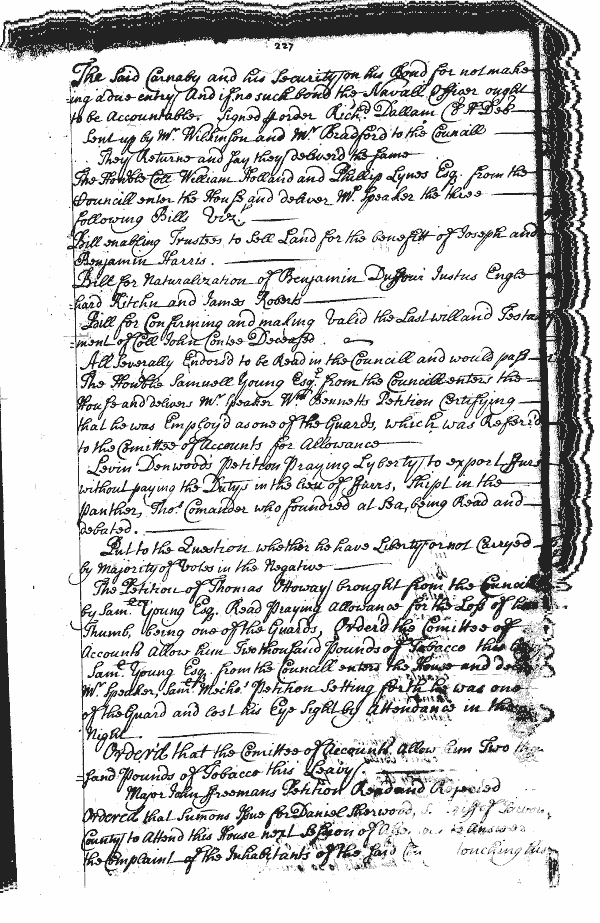 227
The Said Carnaby and his Security on his Bond for not make
ing a due entry And if no such bond the Navall Officer ought
to be Accountable. Signed p order Richd: Dallam Cl H Deb
Sent up by Mr Wilkinson and Mr Bradford to the Councill
They Returne and say they deliverd the same
The Honble Coll William Holland and Phillip Lynes Esq: from the
Councill enter the House and deliver Mr Speaker the three
following Bills Vizt.
Bill enabling Trustees to Sell Land for the benefitt of Joseph and
Benjamin Harris.
Bill for Naturalization of Benjamin Dussour Justus Engle
hard Kitchin and James Roberts
Bill for Confirming and making Valid the Last will and Testa
ment of Coll John Contee Deceased.
All Severally Endorsd to be Read in the Councill and would pass
The Honble Samuell Young Esqr. from the Councill enters the
House and delivers Mr Speaker Wm Bennetts Petition Certifying
that he was Employd as one of the Guards, which was Referr'd
to the Comittee of Accounts for Allowance
Levin Denwoods Petition Praying Lyberty to export Furrs
without paying the Dutys in the lieu of Furrs, Shipt in the
Panther, Thos. Comander who foundred at Sea, being Read and
debated.
Put to the Question whether he have Liberty or not Carryed
by Majority of Votes in the Negative
The Petition of Thomas Ottoway brought from the Councill
by Saml. Young Esq. Read Praying Allowance for the Loss of his
Thumb, being one of the Guards, Orderd the Comittee of
Accounts Allow him Two thousand Pounds of Tobacco this
Saml. Young Esq. from the Councill enters the House and
Mr Speaker, Saml. Mecks' Petition Setting forth he was one
of the Guard and lost his Eye Sight by Attendance in the
Night
Orderd that the Comittee of Accounts Allow him Two thou
sand Pounds of Tobacco this Leavy
Major John Freemans Petition Read and Rejected
Ordered that Sumons Issue for Daniel Sherwood,
County to Attend this House next Session of to Answer
the Complaint of the Inhabitants of the Said touching his